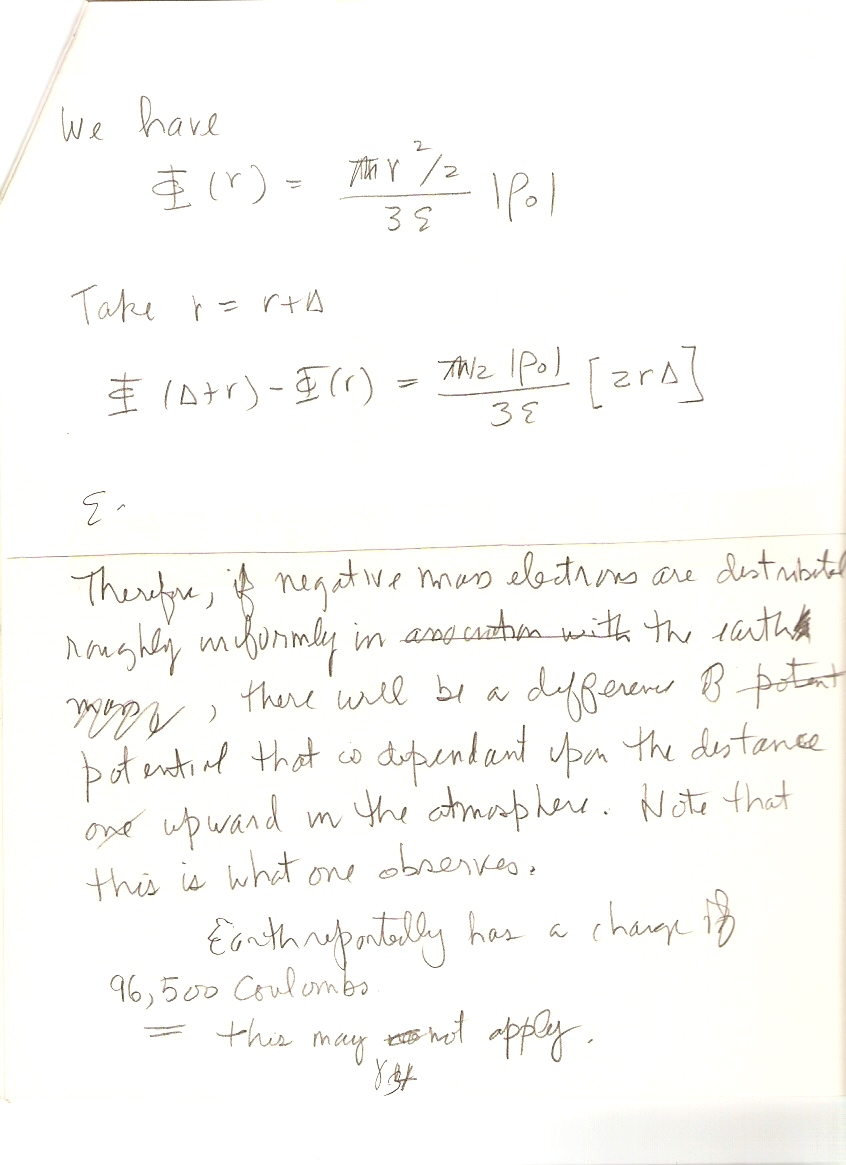 We have
Φ(r) = r²/2 / 3ε |ρ₀|
Take r = r+Δ
Φ(Δ+r) - Φ(r) = /2 |ρ₀| / 3ε [2rΔ]
ε
Therefore, if negative mass electrons are distributed
roughly uniformly in association with the earth
, there will be a difference of potent
potential that is dependant upon the distance
one upward in the atmosphere. Note that
this is what one observes.
Earth reportedly has a charge of
96,500 Coulombs
= this may not apply.